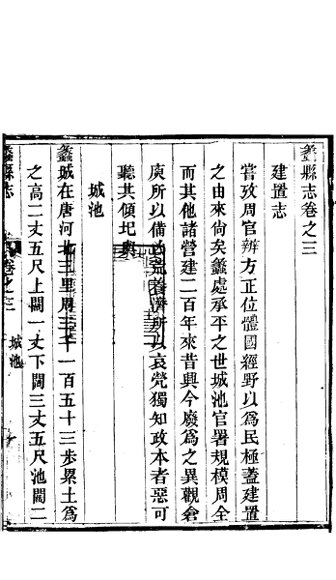 蠡縣志卷之三
建置志
嘗攷周官辨方正位體國經野以爲民極蓋建置
之由來尙矣蠡處承平之世城池官署規模周全
而其他諸營建二百年來昔興今廢爲之異觀倉
庾所以備凶荒養濟所以哀煢獨知政本者惡可
聽其傾圮歟
城池
蠡城在唐河北三里周三千一百五十三步累土爲
之高二丈五尺上闊一丈下闊三丈五尺池闊二
蠡縣志
卷之三
城池